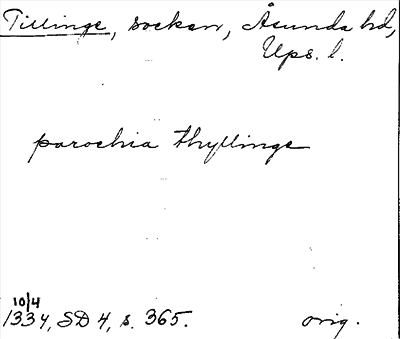 Tillinge, socken, Åsunda hd,
Ups. l.
parochia thyllinge
10/4
1334, SD 4, s. 365. orig.